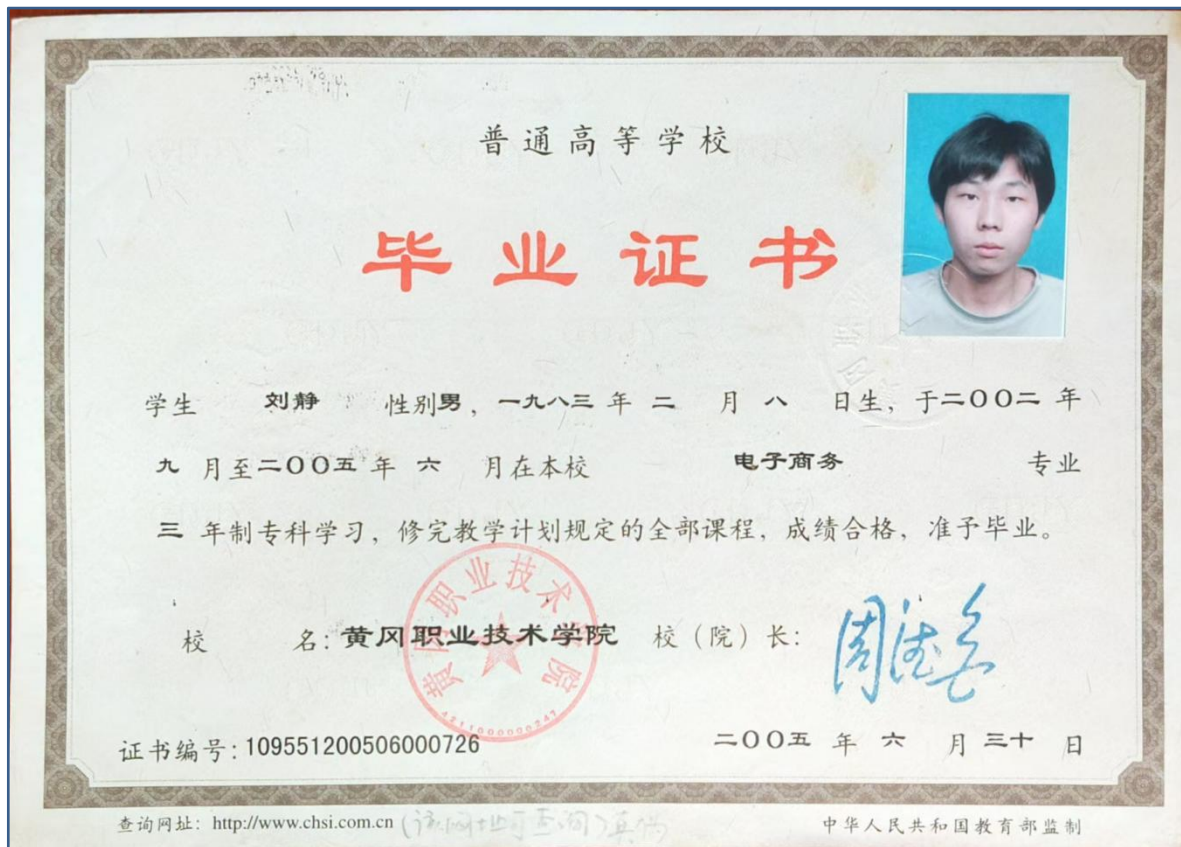 普通高等学校
毕业证书
学生 刘静 性别男，一九八三年 二 月 八 日生，于二〇〇二年
九 月至二〇〇五年 六 月在本校 电子商务 专业
三 年制专科学习，修完教学计划规定的全部课程，成绩合格，准予毕业。
黄冈职业技术学院
4211000000247
校 名：黄冈职业技术学院 校（院）长：
证书编号：109551200506000726 二〇〇五 年 六 月 三十 日
查询网址：http://www.chsi.com.cn (该网址可查询)真伪
中华人民共和国教育部监制